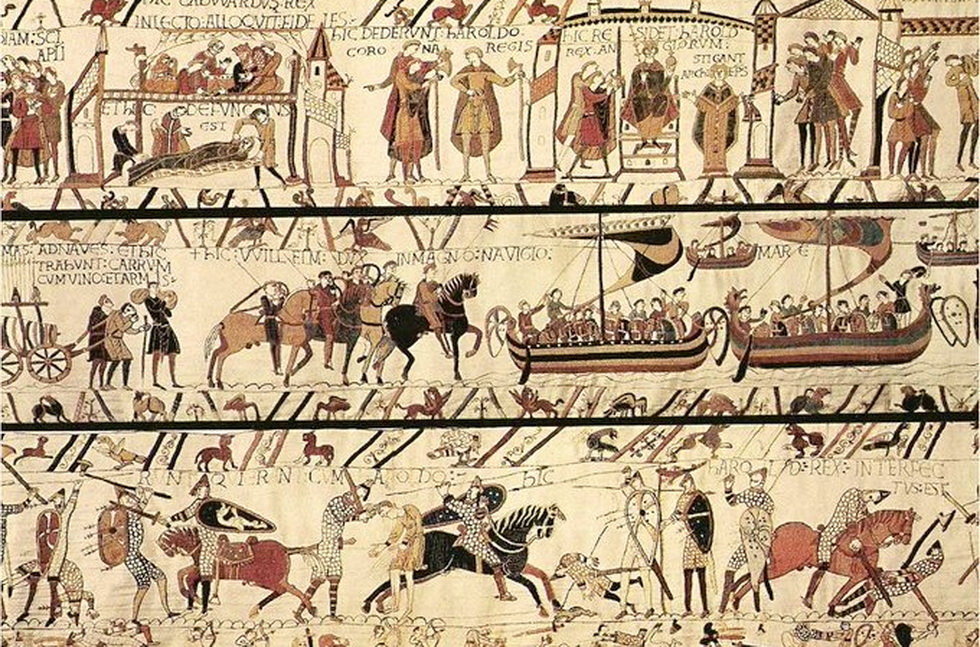 HIC EADVVARDVS: REX
IN LECTO: ALLOQVIT: FIDELES:
IAM: SCI
APLI
ET HIC: DEFVNCTVS
EST
HIC DEDERVNT: HAROLDO:
CORO NA REGIS
HIC RE SIDET: HAROLD
REX: AN GLORVM:
STIGANT
ARCHIEPS
MAS: ADNAVES: ET HIC
TRAHVNT: CARRVM
CVM VINO: ET ARMIS:
+ HIC: VVILLELM: DVX IN MAGNO: NAVIGIO:
MARE
RVNT QVI ERANT: CVM HAROLDO: HIC HAROLD: REX: INTERFEC
TVS: EST